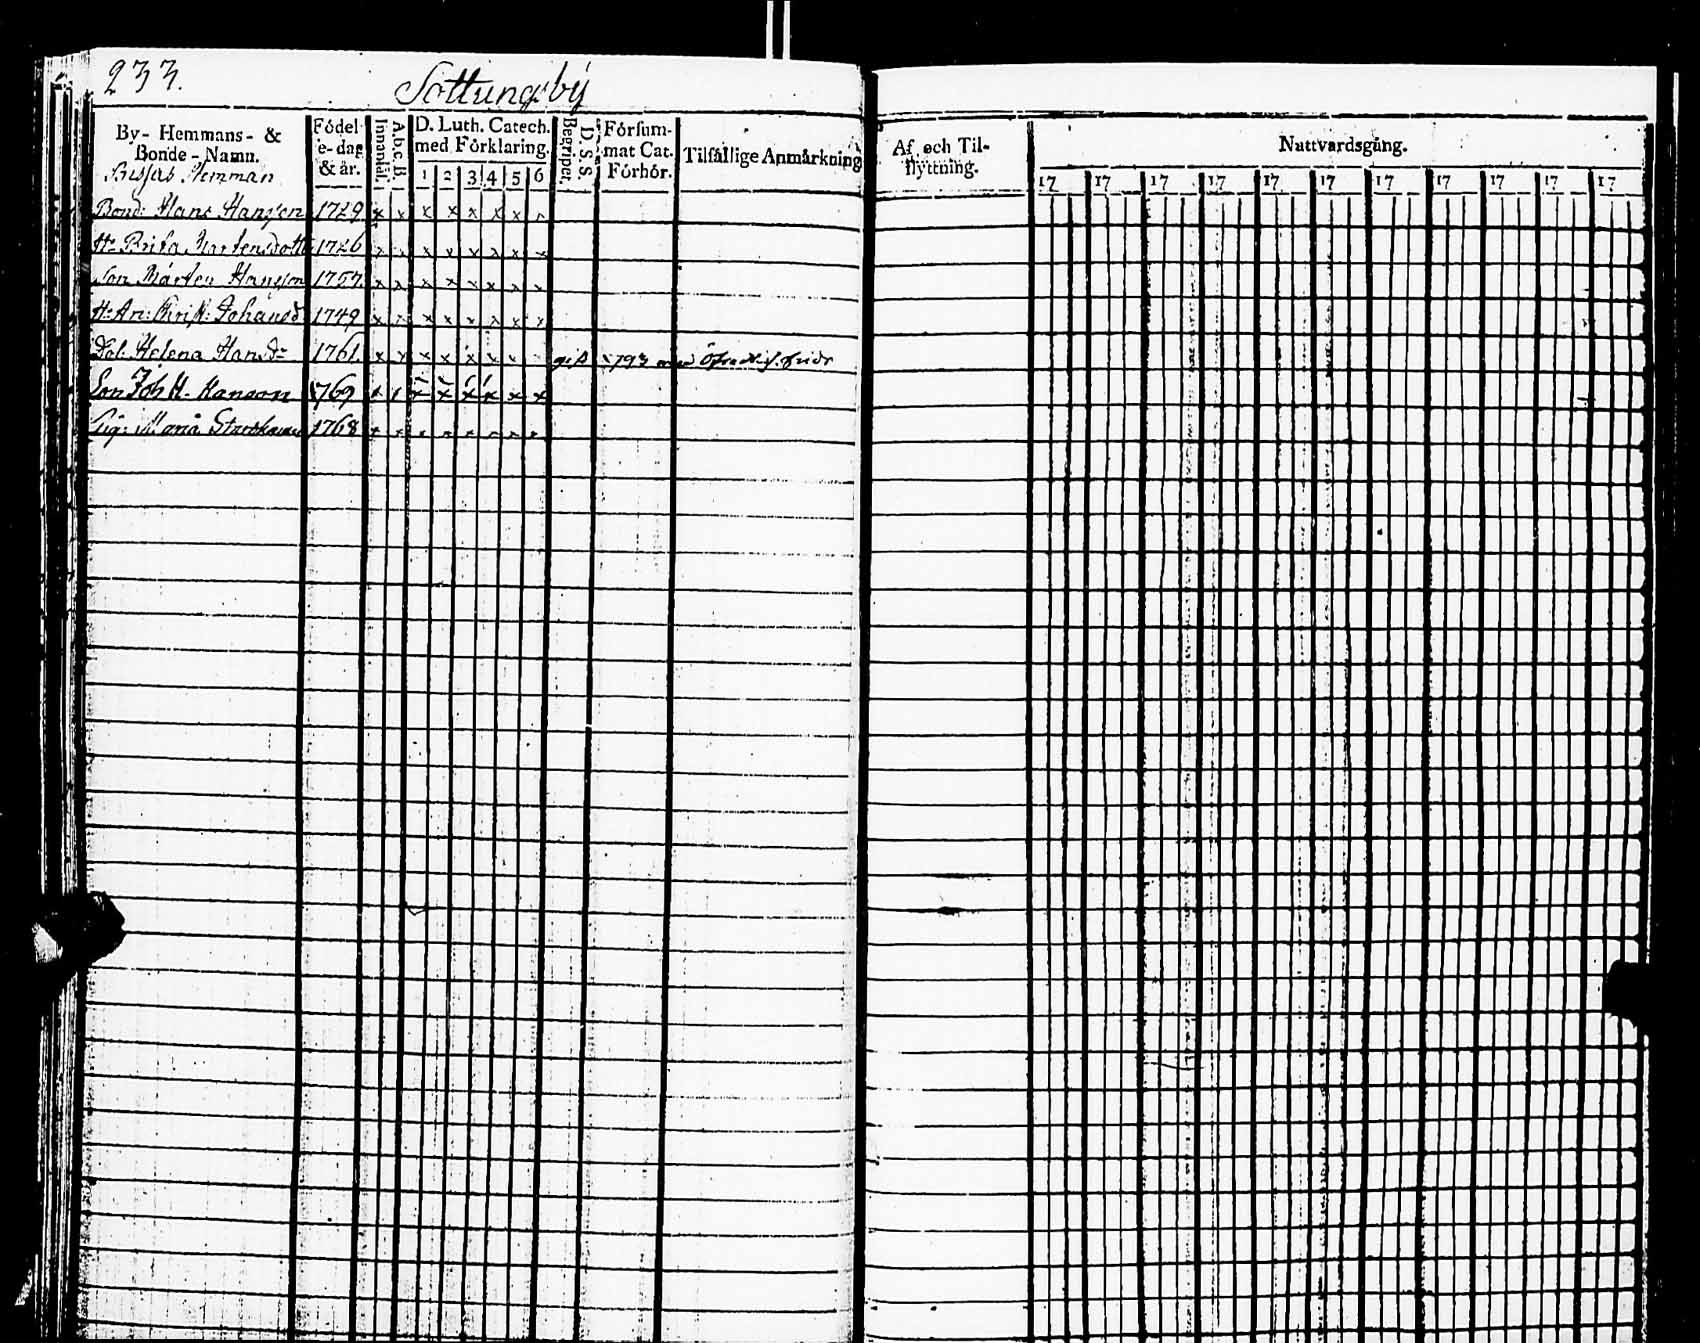 233.
Sottungaby
By- Hemmans- &
Bonde-Namn.
Hemman
Födel-
se-dag
& år.
Innanläs.
A.b.c.B.
D. Luth. Catech.
med Förklaring.
1 2 3 4 5 6
Begriper.
D. S. S.
Försum-
mat Cat.
Förhör.
Tilfällige Anmärkning
Af och Til-
flyttning.
Nattvardsgång.
17 17 17 17 17 17 17 17 17 17 17
Bond: Hans Hansson 1729 x x x x x x x
H: Brita Martensdott 1726 x x x x x x x x
Son Mårten Hansson 1757 x x x x x x x x
H: An: Krist: Johansd 1749 x x x x x x x x
Dot. Helena Hansd 1761 x x x x x x x gift 1793
Son Joh H. Hanson 1769 x x x x x x x x
Pig: Maria 1768 x x x x x x x x